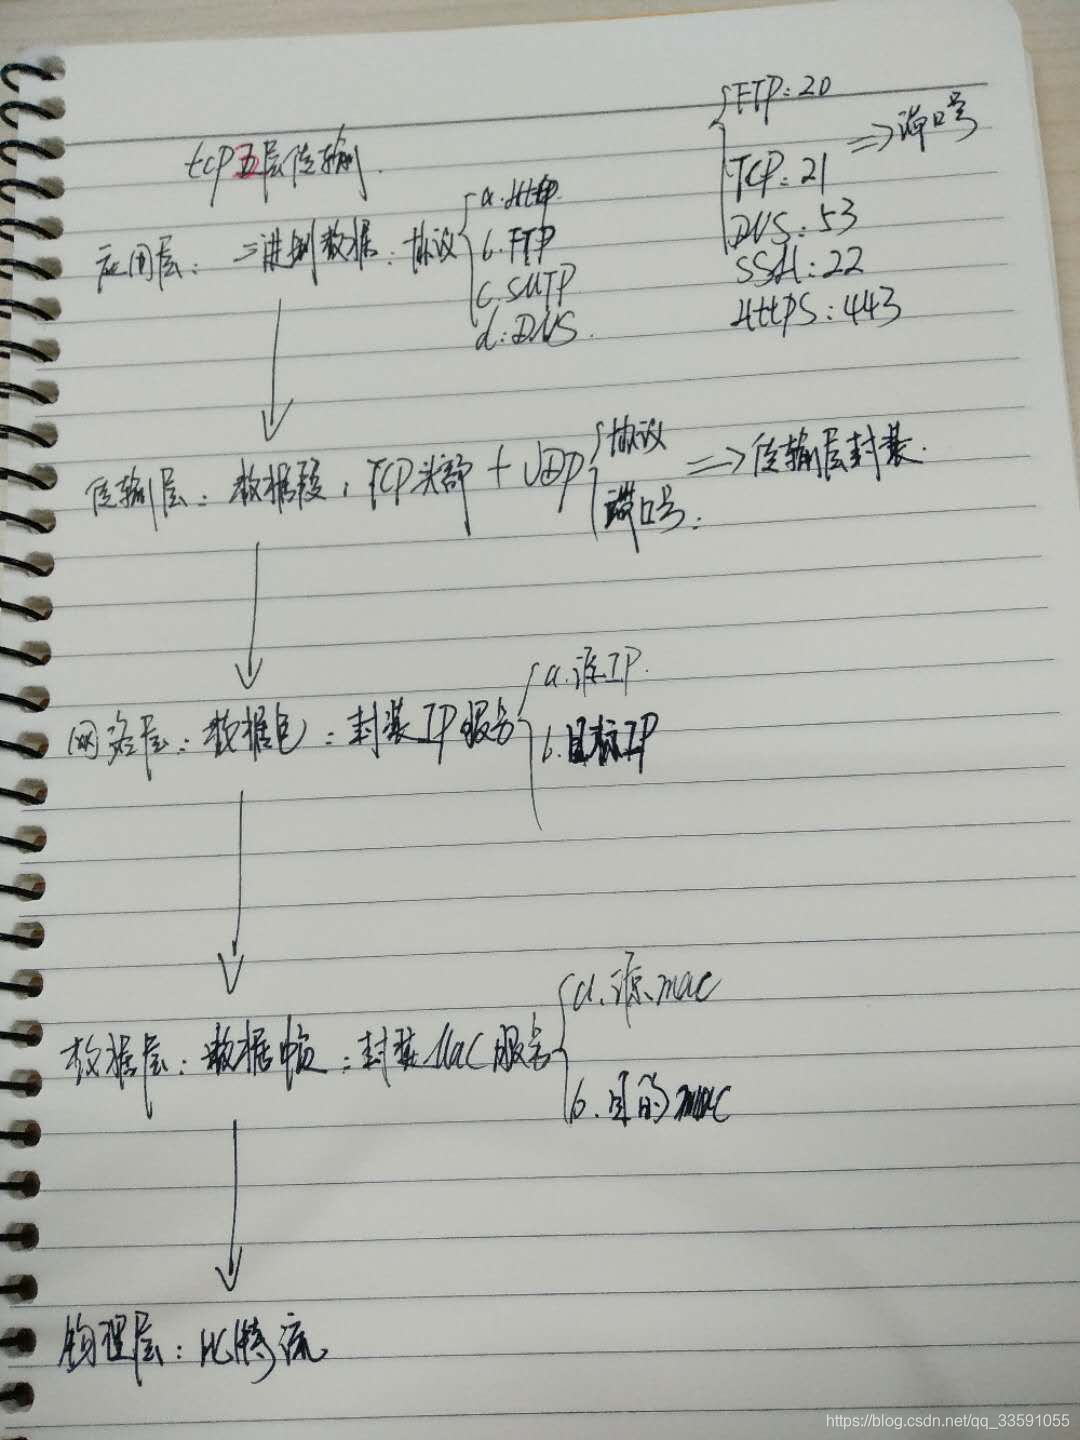 FTP: 20
=> 端口号
TCP: 21
DNS: 53
SSH: 22
Https: 443
tcp五层传输.
应用层: 二进制数据: 协议
a. Http
b. FTP
c. SMTP
d: DNS.
传输层: 数据段, TCP头部 + UDP
协议
端口号:
=> 传输层封装.
网络层: 数据包: 封装IP服务
a. 源IP.
b. 目标IP
数据层: 数据帧: 封装MaC服务
a. 源mac
b. 目的mac
物理层: 比特流
https://blog.csdn.net/qq_33591055